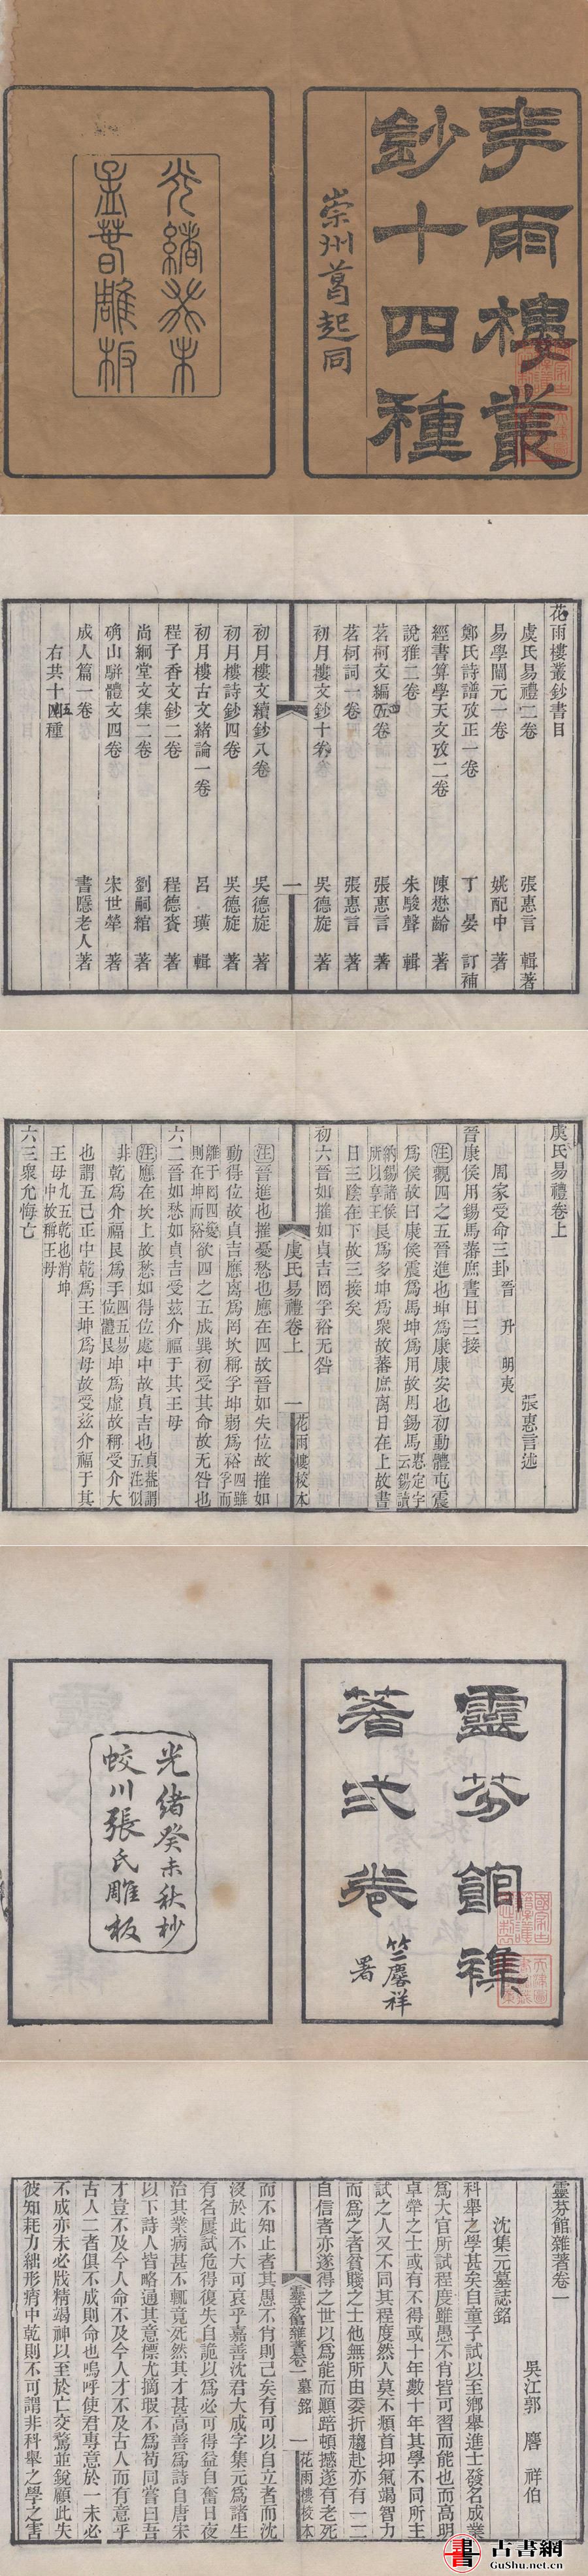 花雨樓叢
鈔十四種
崇州葛起同
光緒癸未
孟春雕板
花雨樓叢鈔書目
虞氏易禮二卷 張惠言 輯著
易學闡元一卷 姚配中 著
鄭氏詩譜攷正一卷 丁晏 訂補
經書算學天文攷二卷 陳懋齡 著
說雅二卷 朱駿聲 輯
茗柯文編五卷 張惠言 著
茗柯詞一卷 張惠言 著
初月樓文鈔十卷 吳德旋 著
一
初月樓文續鈔八卷 吳德旋 著
初月樓詩鈔四卷 吳德旋 著
初月樓古文緒論一卷 呂璜 輯
程子香文鈔二卷 程德賚 著
尚絅堂文集二卷 劉嗣綰 著
确山駢體文四卷 宋世犖 著
成人篇一卷 書隱老人著
右共十四種
虞氏易禮卷上
張惠言述
周家受命三卦 晉 升 明夷
晉康侯用錫馬蕃庶晝日三接
注觀四之五晉進也坤為康康安也初動體屯震
為侯故曰康侯震為馬坤為用故用錫馬惠定字云錫讀
納錫諸侯所以享王艮為多坤為衆故蕃庶离日在上故晝
日三陰在下故三接矣
初六晉如摧如貞吉罔孚裕无咎
虞氏易禮卷上
一
花雨樓校本
注晉進也摧憂愁也應在四故晉如失位故摧如
動得位故貞吉應离為罔坎稱孚坤弱為裕四雖孚而
離于罔四變則在坤而裕欲四之五成巽初受其命故无咎也
六二晉如愁如貞吉受茲介福于其王母
注應在坎上故愁如得位處中故貞吉也貞益謂五注似
非乾為介福艮為手四五易位體艮坤為虛故稱受介大
也謂五已正中乾為王坤為母故受茲介福于其
王母九五乾也消坤中故稱王母
六三衆允悔亡
靈芬館襍
著弍卷
竺麐祥
署
光緒癸未秋杪
蛟川張氏雕板
靈芬館雜著卷一
吳江郭麐祥伯
沈集元墓誌銘
科舉之學甚矣自童子試以至鄉舉進士發名成業
為大官所試程度雖愚不肖皆可習而能也而高明
卓犖之士或有不得或十年數十年其學不同所主
試之人又不同其程度然人莫不頫首抑氣竭智力
而為之者貧賤之士他無所由委折趨赴亦有一二
自信者亦遂得之世以為能而顚踣頓撼遂有老死
靈芬館雜著卷一 墓銘
一
花雨樓校本
而不知止者其愚不肖則已矣有可以自立者而沈
沒於此不大可哀乎嘉善沈君大成字集元為諸生
有名屢試危得復失自詭以為必可得益自奮日夜
治其業病甚不輒竟死然其才甚高善為詩自唐宋
以下詩人皆略通其意標尤摘瑕不為苟同嘗曰吾
才豈不及今人命不及今人才不及古人而有意乎
古人二者俱不成則命也嗚呼使君專意於一未必
不成亦未必戕精竭神以至於亡交騖並銳顧此失
彼知耗力絀形瘠中乾則不可謂非科舉之學之害
古書網
GuShu.net.cn